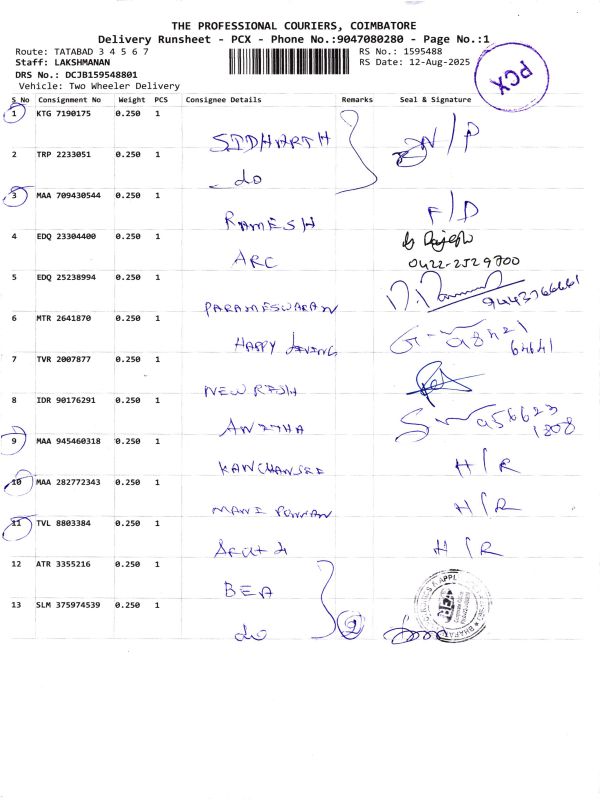 THE PROFESSIONAL COURIERS, COIMBATORE
Delivery Runsheet - PCX - Phone No.:9047080280 - Page No.:1
Route: TATABAD 3 4 5 6 7
RS No.: 1595488
Staff: LAKSHMANAN
RS Date: 12-Aug-2025
DRS No.: DCJB159548801
Vehicle: Two Wheeler Delivery
PCX
S No Consignment No Weight PCS Consignee Details Remarks Seal & Signature
1 KTG 7190175 0.250 1 SIDHARTH N/P
2 TRP 2233051 0.250 1 do
3 MAA 709430544 0.250 1 RAMESH F/D
4 EDQ 23304400 0.250 1 ARC
0422-2529700
5 EDQ 25238994 0.250 1 PARAMESWARAN
6 MTR 2641870 0.250 1 HAPPY LIVING
64641
7 TVR 2007877 0.250 1
8 IDR 90176291 0.250 1 ANITHA 956623
1208
9 MAA 945460318 0.250 1 H/R
10 MAA 282772343 0.250 1 H/R
11 TVL 8803384 0.250 1 H/R
12 ATR 3355216 0.250 1 BEA
13 SLM 375974539 0.250 1 do 2